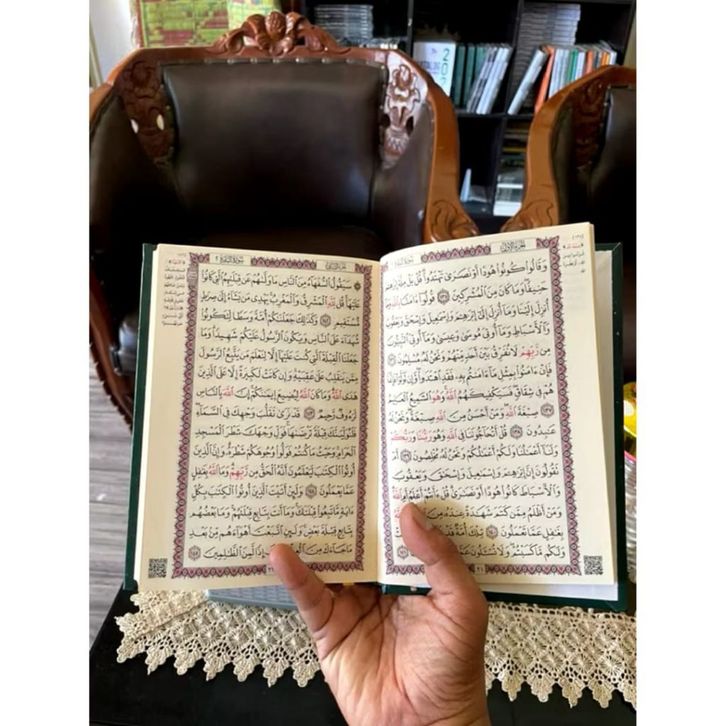 الجزء الأول
سورة البقرة ٢
وَقَالُوا۟ كُونُوا۟ هُودًا أَوْ نَصَٰرَىٰ تَهْتَدُوا۟ قُلْ بَلْ مِلَّةَ إِبْرَٰهِۦمَ
حَنِيفًا وَمَا كَانَ مِنَ ٱلْمُشْرِكِينَ ١٣٥ قُولُوٓا۟ ءَامَنَّا بِٱللَّهِ وَمَآ
أُنزِلَ إِلَيْنَا وَمَآ أُنزِلَ إِلَىٰٓ إِبْرَٰهِۦمَ وَإِسْمَٰعِيلَ وَإِسْحَٰقَ وَيَعْقُوبَ
وَٱلْأَسْبَاطِ وَمَآ أُوتِىَ مُوسَىٰ وَعِيسَىٰ وَمَآ أُوتِىَ ٱلنَّبِيُّونَ
مِن رَّبِّهِمْ لَا نُفَرِّقُ بَيْنَ أَحَدٍ مِّنْهُمْ وَنَحْنُ لَهُۥ مُسْلِمُونَ ١٣٦
فَإِنْ ءَامَنُوا۟ بِمِثْلِ مَآ ءَامَنتُم بِهِۦ فَقَدِ ٱهْتَدَوا۟ وَّإِن تَوَلَّوْا۟ فَإِنَّمَا
هُمْ فِى شِقَاقٍ فَسَيَكْفِيكَهُمُ ٱللَّهُ وَهُوَ ٱلسَّمِيعُ ٱلْعَلِيمُ
١٣٧ صِبْغَةَ ٱللَّهِ وَمَنْ أَحْسَنُ مِنَ ٱللَّهِ صِبْغَةً وَنَحْنُ لَهُۥ
عَٰبِدُونَ ١٣٨ قُلْ أَتُحَآجُّونَنَا فِى ٱللَّهِ وَهُوَ رَبُّنَا وَرَبُّكُمْ
وَلَنَآ أَعْمَٰلُنَا وَلَكُمْ أَعْمَٰلُكُمْ وَنَحْنُ لَهُۥ مُخْلِصُونَ ١٣٩ أَمْ
تَقُولُونَ إِنَّ إِبْرَٰهِۦمَ وَإِسْمَٰعِيلَ وَإِسْحَٰقَ وَيَعْقُوبَ
وَٱلْأَسْبَاطَ كَانُوا۟ هُودًا أَوْ نَصَٰرَىٰ قُلْ ءَأَنتُمْ أَعْلَمُ أَمِ ٱللَّهُ
وَمَنْ أَظْلَمُ مِمَّن كَتَمَ شَهَٰدَةً عِندَهُۥ مِنَ
بِغَٰفِلٍ عَمَّا تَعْمَلُونَ ١٤٠ تِلْكَ أُمَّةٌ قَدْ
وَلَكُم مَّا كَسَبْتُمْ وَلَا تُسْـَٔلُونَ
٢١
الجزء الثاني
سورة البقرة ٢
سَيَقُولُ ٱلسُّفَهَآءُ مِنَ ٱلنَّاسِ مَا وَلَّىٰهُمْ عَن قِبْلَتِهِمُ ٱلَّتِى كَانُوا۟
عَلَيْهَا قُل لِّلَّهِ ٱلْمَشْرِقُ وَٱلْمَغْرِبُ يَهْدِى مَن يَشَآءُ إِلَىٰ صِرَٰطٍ
مُّسْتَقِيمٍ ١٤٢ وَكَذَٰلِكَ جَعَلْنَٰكُمْ أُمَّةً وَسَطًا لِّتَكُونُوا۟
شُهَدَآءَ عَلَى ٱلنَّاسِ وَيَكُونَ ٱلرَّسُولُ عَلَيْكُمْ شَهِيدًا وَمَا
جَعَلْنَا ٱلْقِبْلَةَ ٱلَّتِى كُنتَ عَلَيْهَآ إِلَّا لِنَعْلَمَ مَن يَتَّبِعُ ٱلرَّسُولَ
مِمَّن يَنقَلِبُ عَلَىٰ عَقِبَيْهِ وَإِن كَانَتْ لَكَبِيرَةً إِلَّا عَلَى ٱلَّذِينَ
هَدَى ٱللَّهُ وَمَا كَانَ ٱللَّهُ لِيُضِيعَ إِيمَٰنَكُمْ إِنَّ ٱللَّهَ بِٱلنَّاسِ
لَرَءُوفٌ رَّحِيمٌ ١٤٣ قَدْ نَرَىٰ تَقَلُّبَ وَجْهِكَ فِى ٱلسَّمَآءِ
فَلَنُوَلِّيَنَّكَ قِبْلَةً تَرْضَىٰهَا فَوَلِّ وَجْهَكَ شَطْرَ ٱلْمَسْجِدِ
ٱلْحَرَامِ وَحَيْثُ مَا كُنتُمْ فَوَلُّوا۟ وُجُوهَكُمْ شَطْرَهُۥ وَإِنَّ ٱلَّذِينَ
أُوتُوا۟ ٱلْكِتَٰبَ لَيَعْلَمُونَ أَنَّهُ ٱلْحَقُّ مِن رَّبِّهِمْ وَمَا ٱللَّهُ بِغَٰفِلٍ
عَمَّا يَعْمَلُونَ ١٤٤ وَلَئِنْ أَتَيْتَ ٱلَّذِينَ أُوتُوا۟ ٱلْكِتَٰبَ بِكُلِّ
ءَايَةٍ مَّا تَبِعُوا۟ قِبْلَتَكَ وَمَآ أَنتَ بِتَابِعٍ قِبْلَتَهُمْ وَمَا بَعْضُهُم
بِتَابِعٍ قِبْلَةَ بَعْضٍ وَلَئِنِ ٱتَّبَعْتَ أَهْوَآءَهُم مِّنۢ بَعْدِ
مَا جَآءَكَ مِنَ ٱلْعِلْمِ إِنَّكَ إِذًا لَّمِنَ ٱلظَّٰلِمِينَ ١٤٥